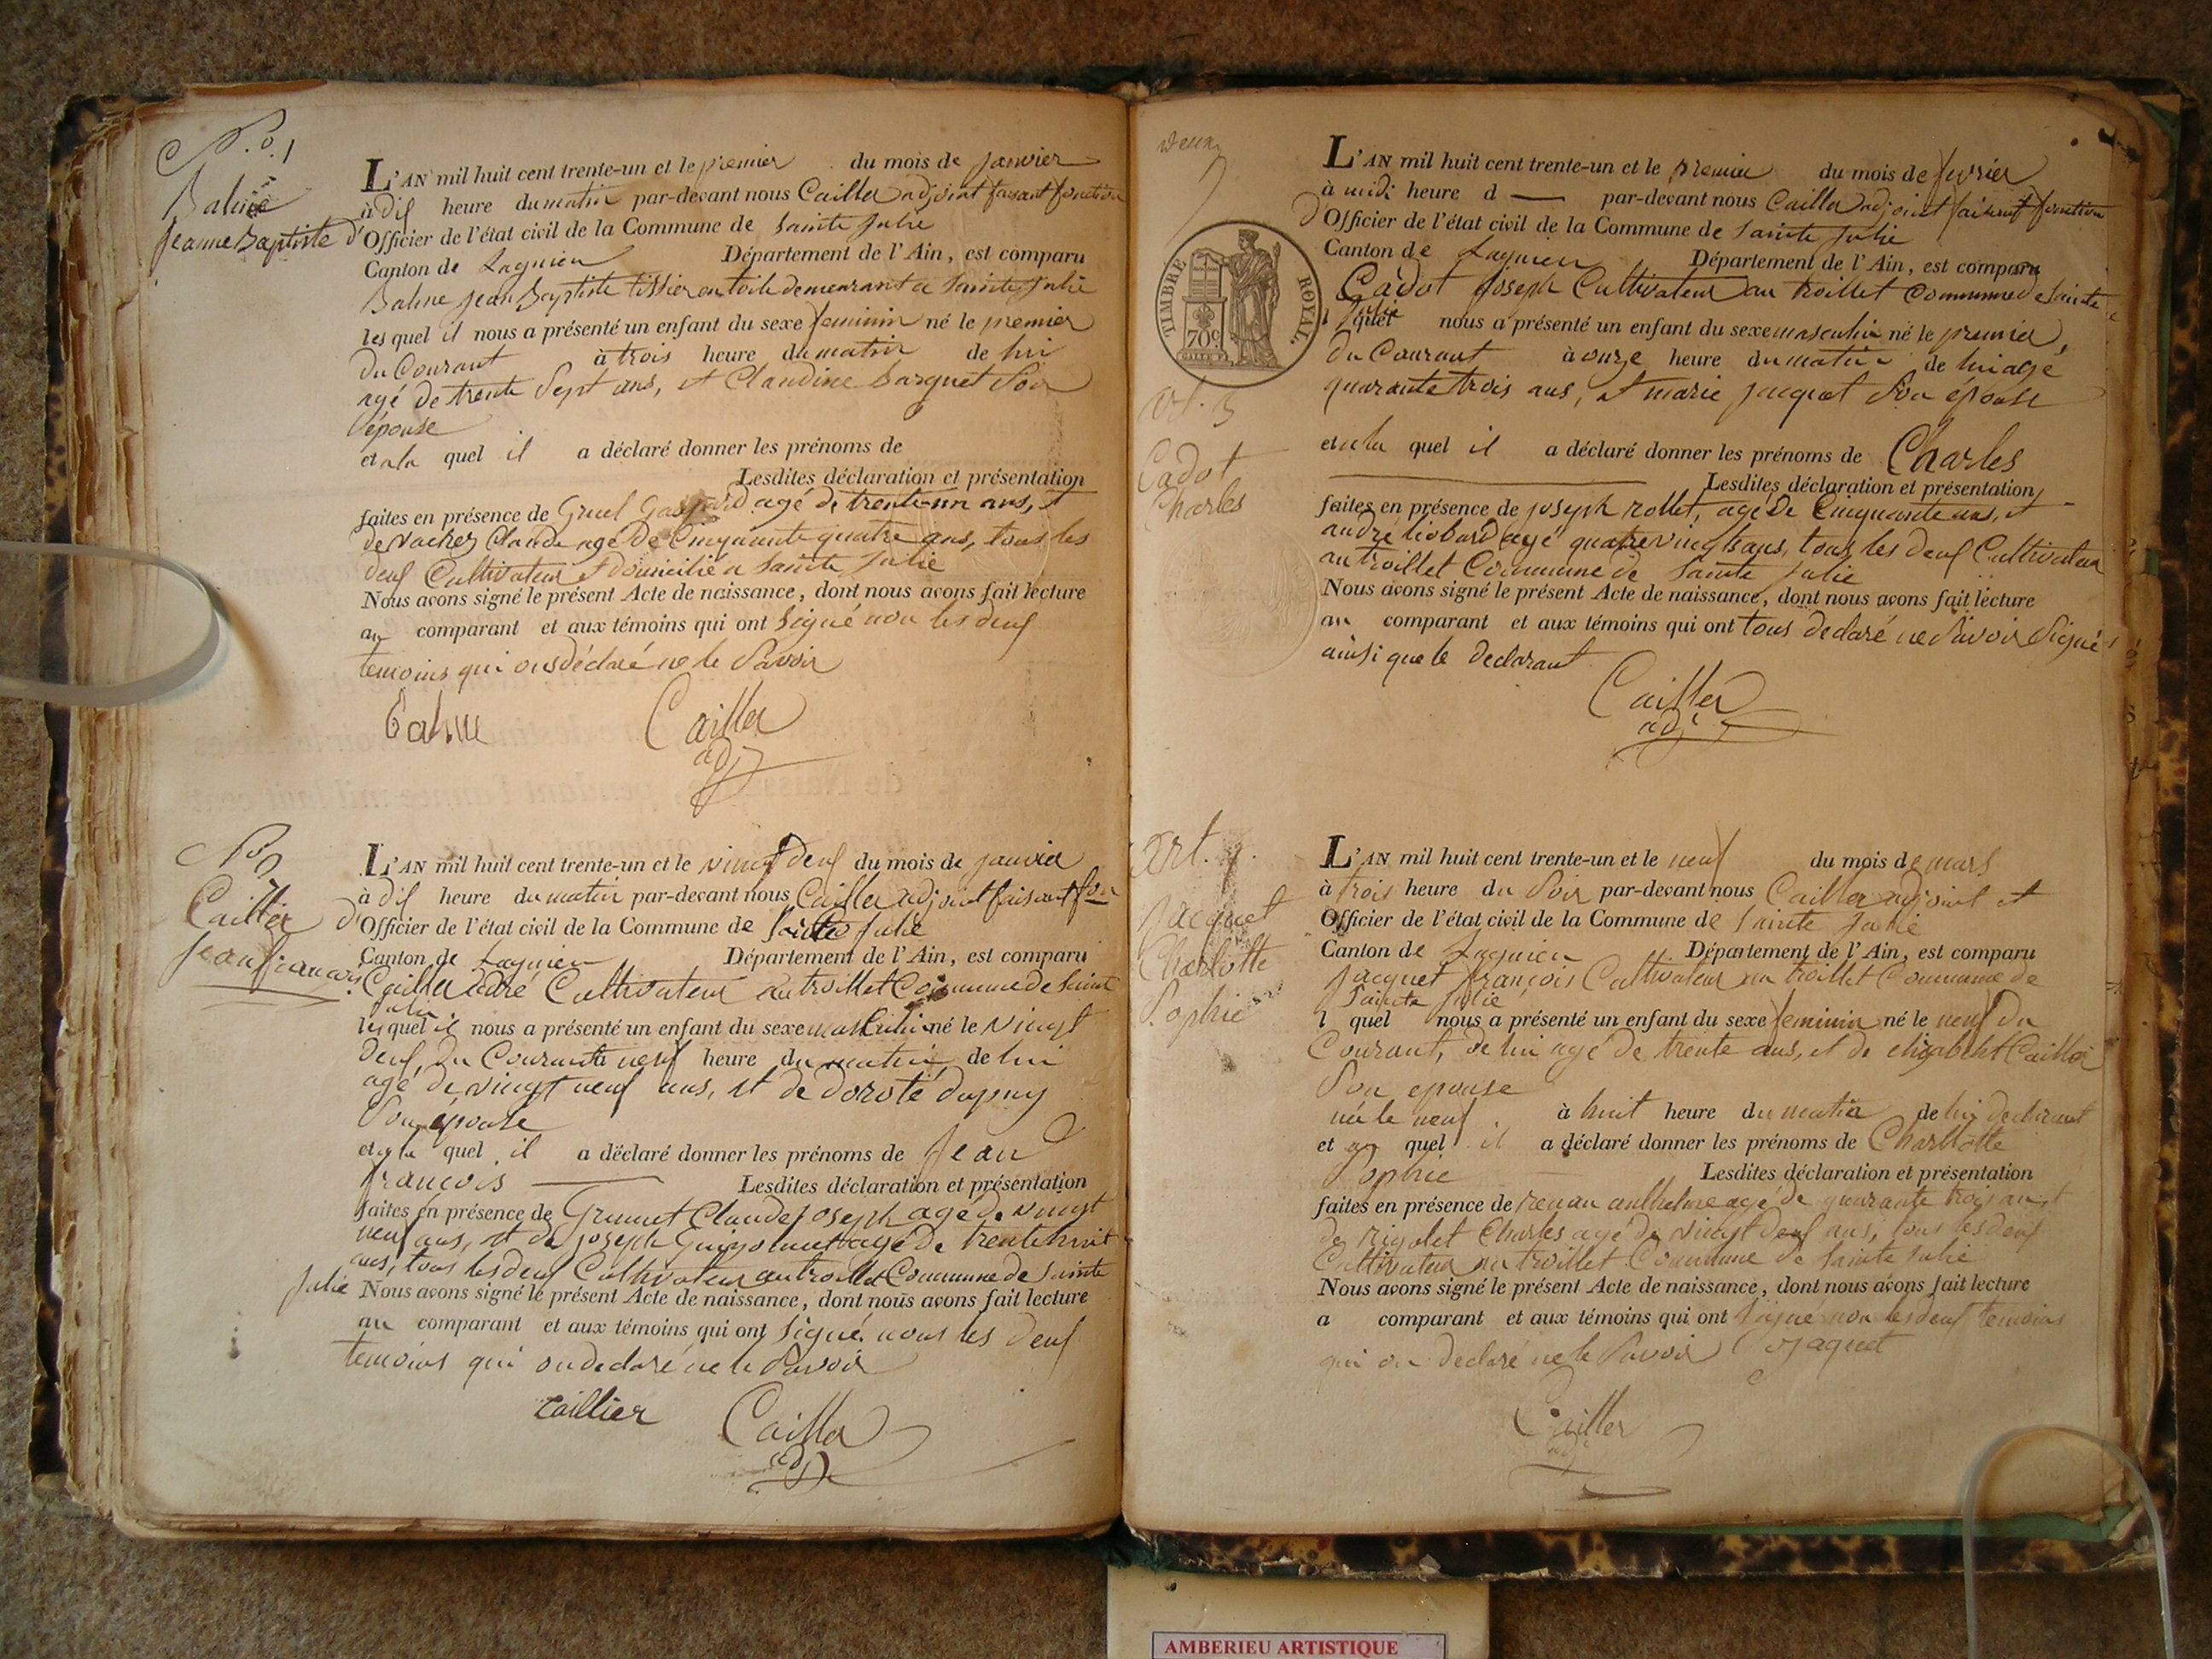 No. 1
Balme
Jeanne Baptiste
L'AN mil huit cent trente-un et le premier du mois de janvier
à dix heure du matin par-devant nous Cailler adjoint faisant fonction
d'Officier de l'état civil de la Commune de Sainte Julie
Canton de Lagnieu Département de l'Ain, est comparu
Balme Jean Baptiste tissier en toile demeurant a Sainte Julie
les quel il nous a présenté un enfant du sexe feminin né le premier
du Courant à trois heure du matin de lui
agé de trente Sept ans, et Claudine Barquet Son
épouse
et a la quel il a déclaré donner les prénoms de
Lesdites déclaration et présentation
faites en présence de Gruel Gaspard agé de trente un ans, et
de Vacher Claude agé de Cinquante quatre ans, tous les
deux Cultivateur et domicilié a Sainte Julie
Nous avons signé le présent Acte de naissance, dont nous avons fait lecture
au comparant et aux témoins qui ont Signé non les deux
temoins qui ons déclaré ne le Savoir
Balme Cailler
adj
No 2
Cailler
jean francois
L'AN mil huit cent trente-un et le vingt deux du mois de janvier
à dix heure du matin par-devant nous Cailler adjoint faisant fon
d'Officier de l'état civil de la Commune de Sainte Julie
Canton de Lagnieu Département de l'Ain, est comparu
Cailler Cultivateur au trollet Commune de Sainte
Julie
les quel il nous a présenté un enfant du sexe masculin né le vingt
deux du Courant à neuf heure du matin de lui
agé de vingt neuf ans, et de Doroté dupuy
Son épouse
et a la quel il a déclaré donner les prénoms de Jean
francois Lesdites déclaration et présentation
faites en présence de Grumet Claude joseph agé de vingt
neuf ans, et de joseph agé de trente huit
ans, tous les deux Cultivateur au trollet Commune de Sainte
Julie Nous avons signé le présent Acte de naissance, dont nous avons fait lecture
au comparant et aux témoins qui ont Signé nous les deux
temoins qui on declaré ne le Savoir
caillier Cailler
adj
deux
TIMBRE ROYAL
70c
art. 3
Cadot
Charles
L'AN mil huit cent trente-un et le premier du mois de fevrier
à midi heure d — par-devant nous Cailler adjoint faisant fonction
d'Officier de l'état civil de la Commune de Sainte Julie
Canton de Lagnieu Département de l'Ain, est comparu
Cadot Joseph Cultivateur au trollet Commune de Sainte
Julie
l quel nous a présenté un enfant du sexe masculin né le premier
du Courant à onze heure du matin de lui agé
quarante trois ans, et marie jacquet Son épouse
et a la quel il a déclaré donner les prénoms de Charles
Lesdites déclaration et présentation
faites en présence de joseph rollet, agé de Cinquante ans, et
andré liobard agé quatre vingts ans, tous les deux Cultivateur
au trollet Commune de Sainte Julie
Nous avons signé le présent Acte de naissance, dont nous avons fait lecture
au comparant et aux témoins qui ont tous declaré ne Savoir Signé
ainsi que le declarant
Cailler
adj
art. 4.
jacquet
Charlotte
Sophie
L'AN mil huit cent trente-un et le neuf du mois de mars
à trois heure du Soir par-devant nous Cailler adjoint et
Officier de l'état civil de la Commune de Sainte Julie
Canton de Lagnieu Département de l'Ain, est comparu
jacquet françois Cultivateur au trollet Commune de
Sainte Julie
l quel nous a présenté un enfant du sexe feminin né le neuf du
Courant, de lui agé de trente ans, et de elizabeht Cailler
Son epouse
née le neuf à huit heure du matin de lui declarant
et au quel il a déclaré donner les prénoms de Charllotte
Sophie Lesdites déclaration et présentation
faites en présence de renau anthelme agé de quarante trois ans et
de rigolet Charles agé de vingt deux ans, tous les deux
Cultivateur au trollet Commune de Sainte Julie
Nous avons signé le présent Acte de naissance, dont nous avons fait lecture
a comparant et aux témoins qui ont Signé non les deux temoins
qui on declaré ne le Savoir Jaquet
Cailler
adj
AMBERIEU ARTISTIQUE